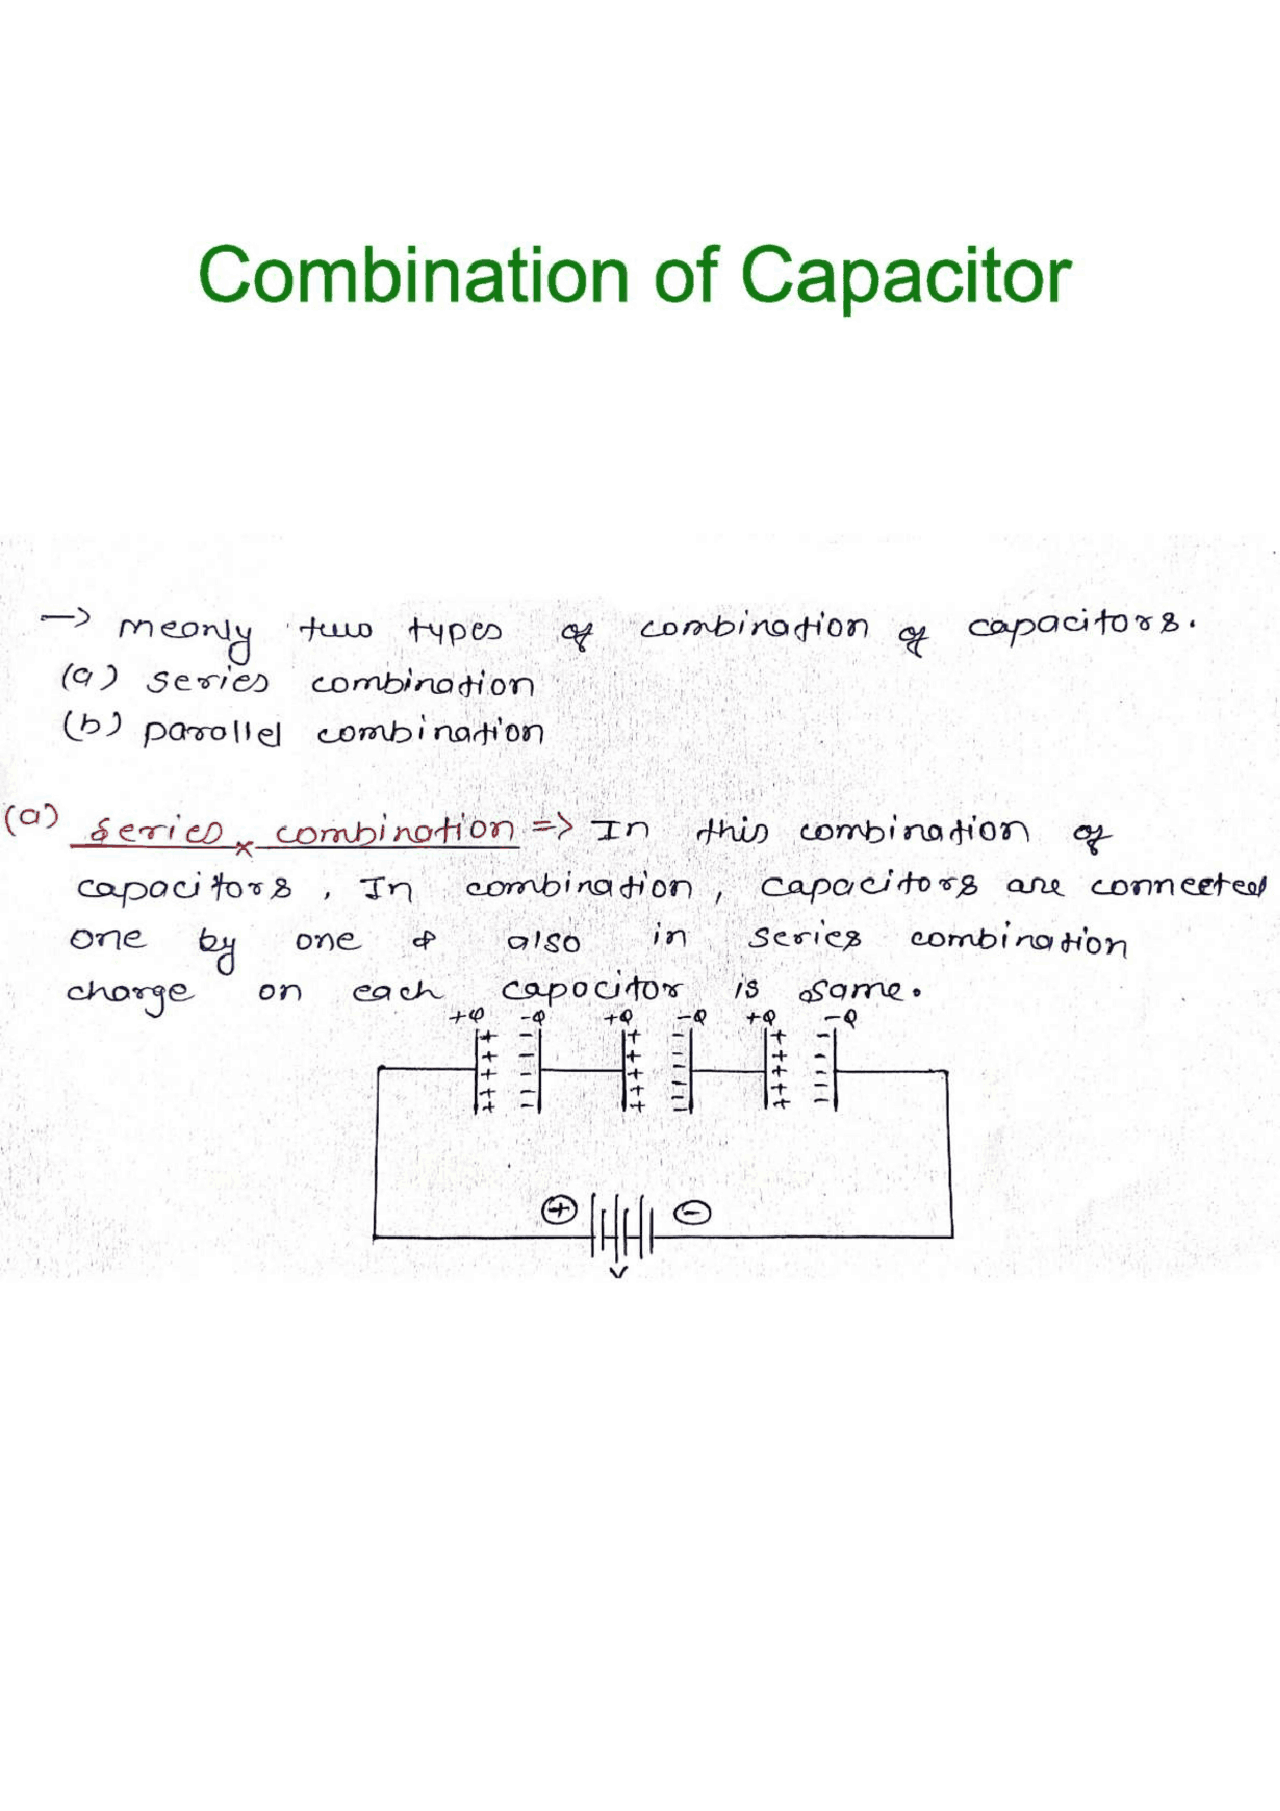 Combination of Capacitor
→ meanly two types of combination of capacitors.
(a) series combination
(b) parallel combination
(a) series combination => In this combination of
capacitors, In combination, capacitors are connected
one by one & also in series combination
charge on each capacitor is same.
+Q -Q +Q -Q +Q -Q
+ -
V